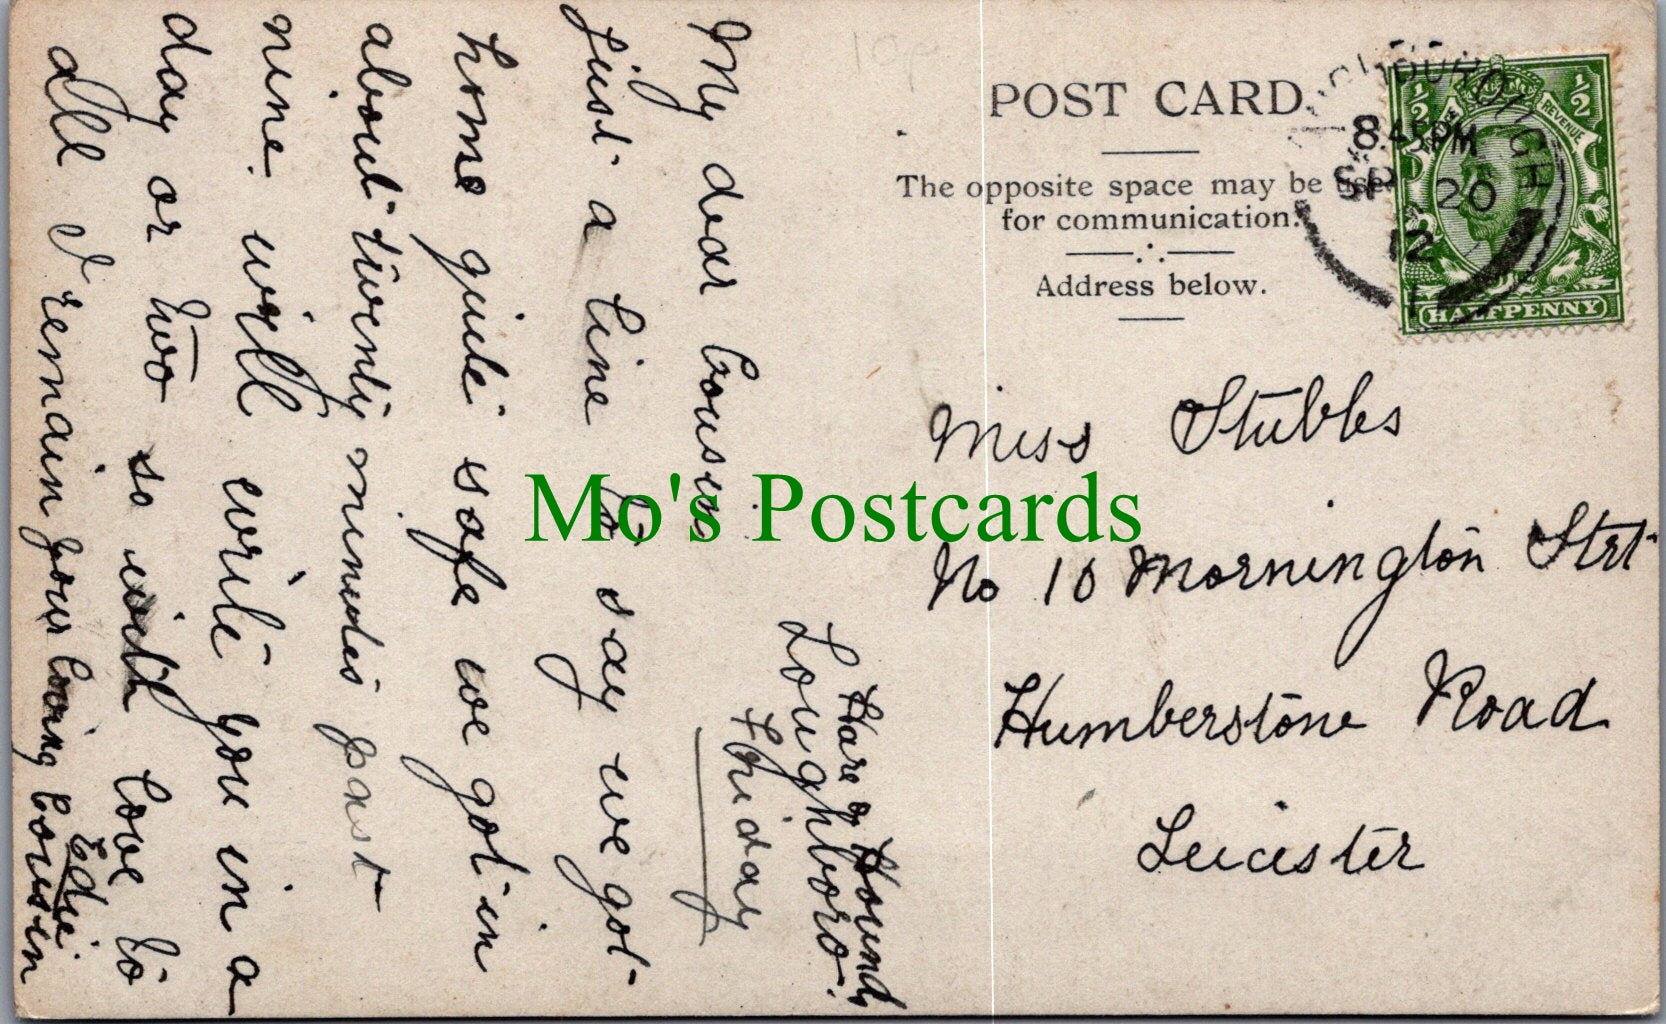 POST CARD
The opposite space may be use
for communication.
Address below.
LOUGHBOROUGH
8.45PM
SP 20
12
1
POSTAGE REVENUE
1/2 1/2
HALFPENNY
Hare & Hounds
Loughboro.
Friday
My dear Cousin
Just a line to say we got
home quite safe we got in
about twenty minutes past
nine will write you in a
day or two so with love to
all I remain your loving Cousin
Edie
Miss Stubbs
No 10 Mornington Strt
Humberstone Road
Leicester
Mo's Postcards